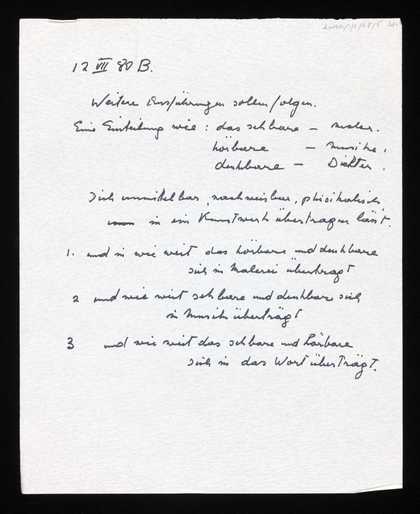 12 VII 80 B.
Weitere Ausführungen sollen folgen.
Eine Einteilung wie: das sehbare – Maler.
hörbare – Musiker.
denkbare – Dichter.
Sich unmittelbar, nachweisbar, phisikalisch
in ein Kunstwerk übertragen lässt.
1. und in wie weit das hörbare und denkbare
sich in Malerei überträgt
2 und wie weit sehbare und denkbare sich
in Musik überträgt
3 und wie weit das sehbare und hörbare
sich in das Wort überträgt.